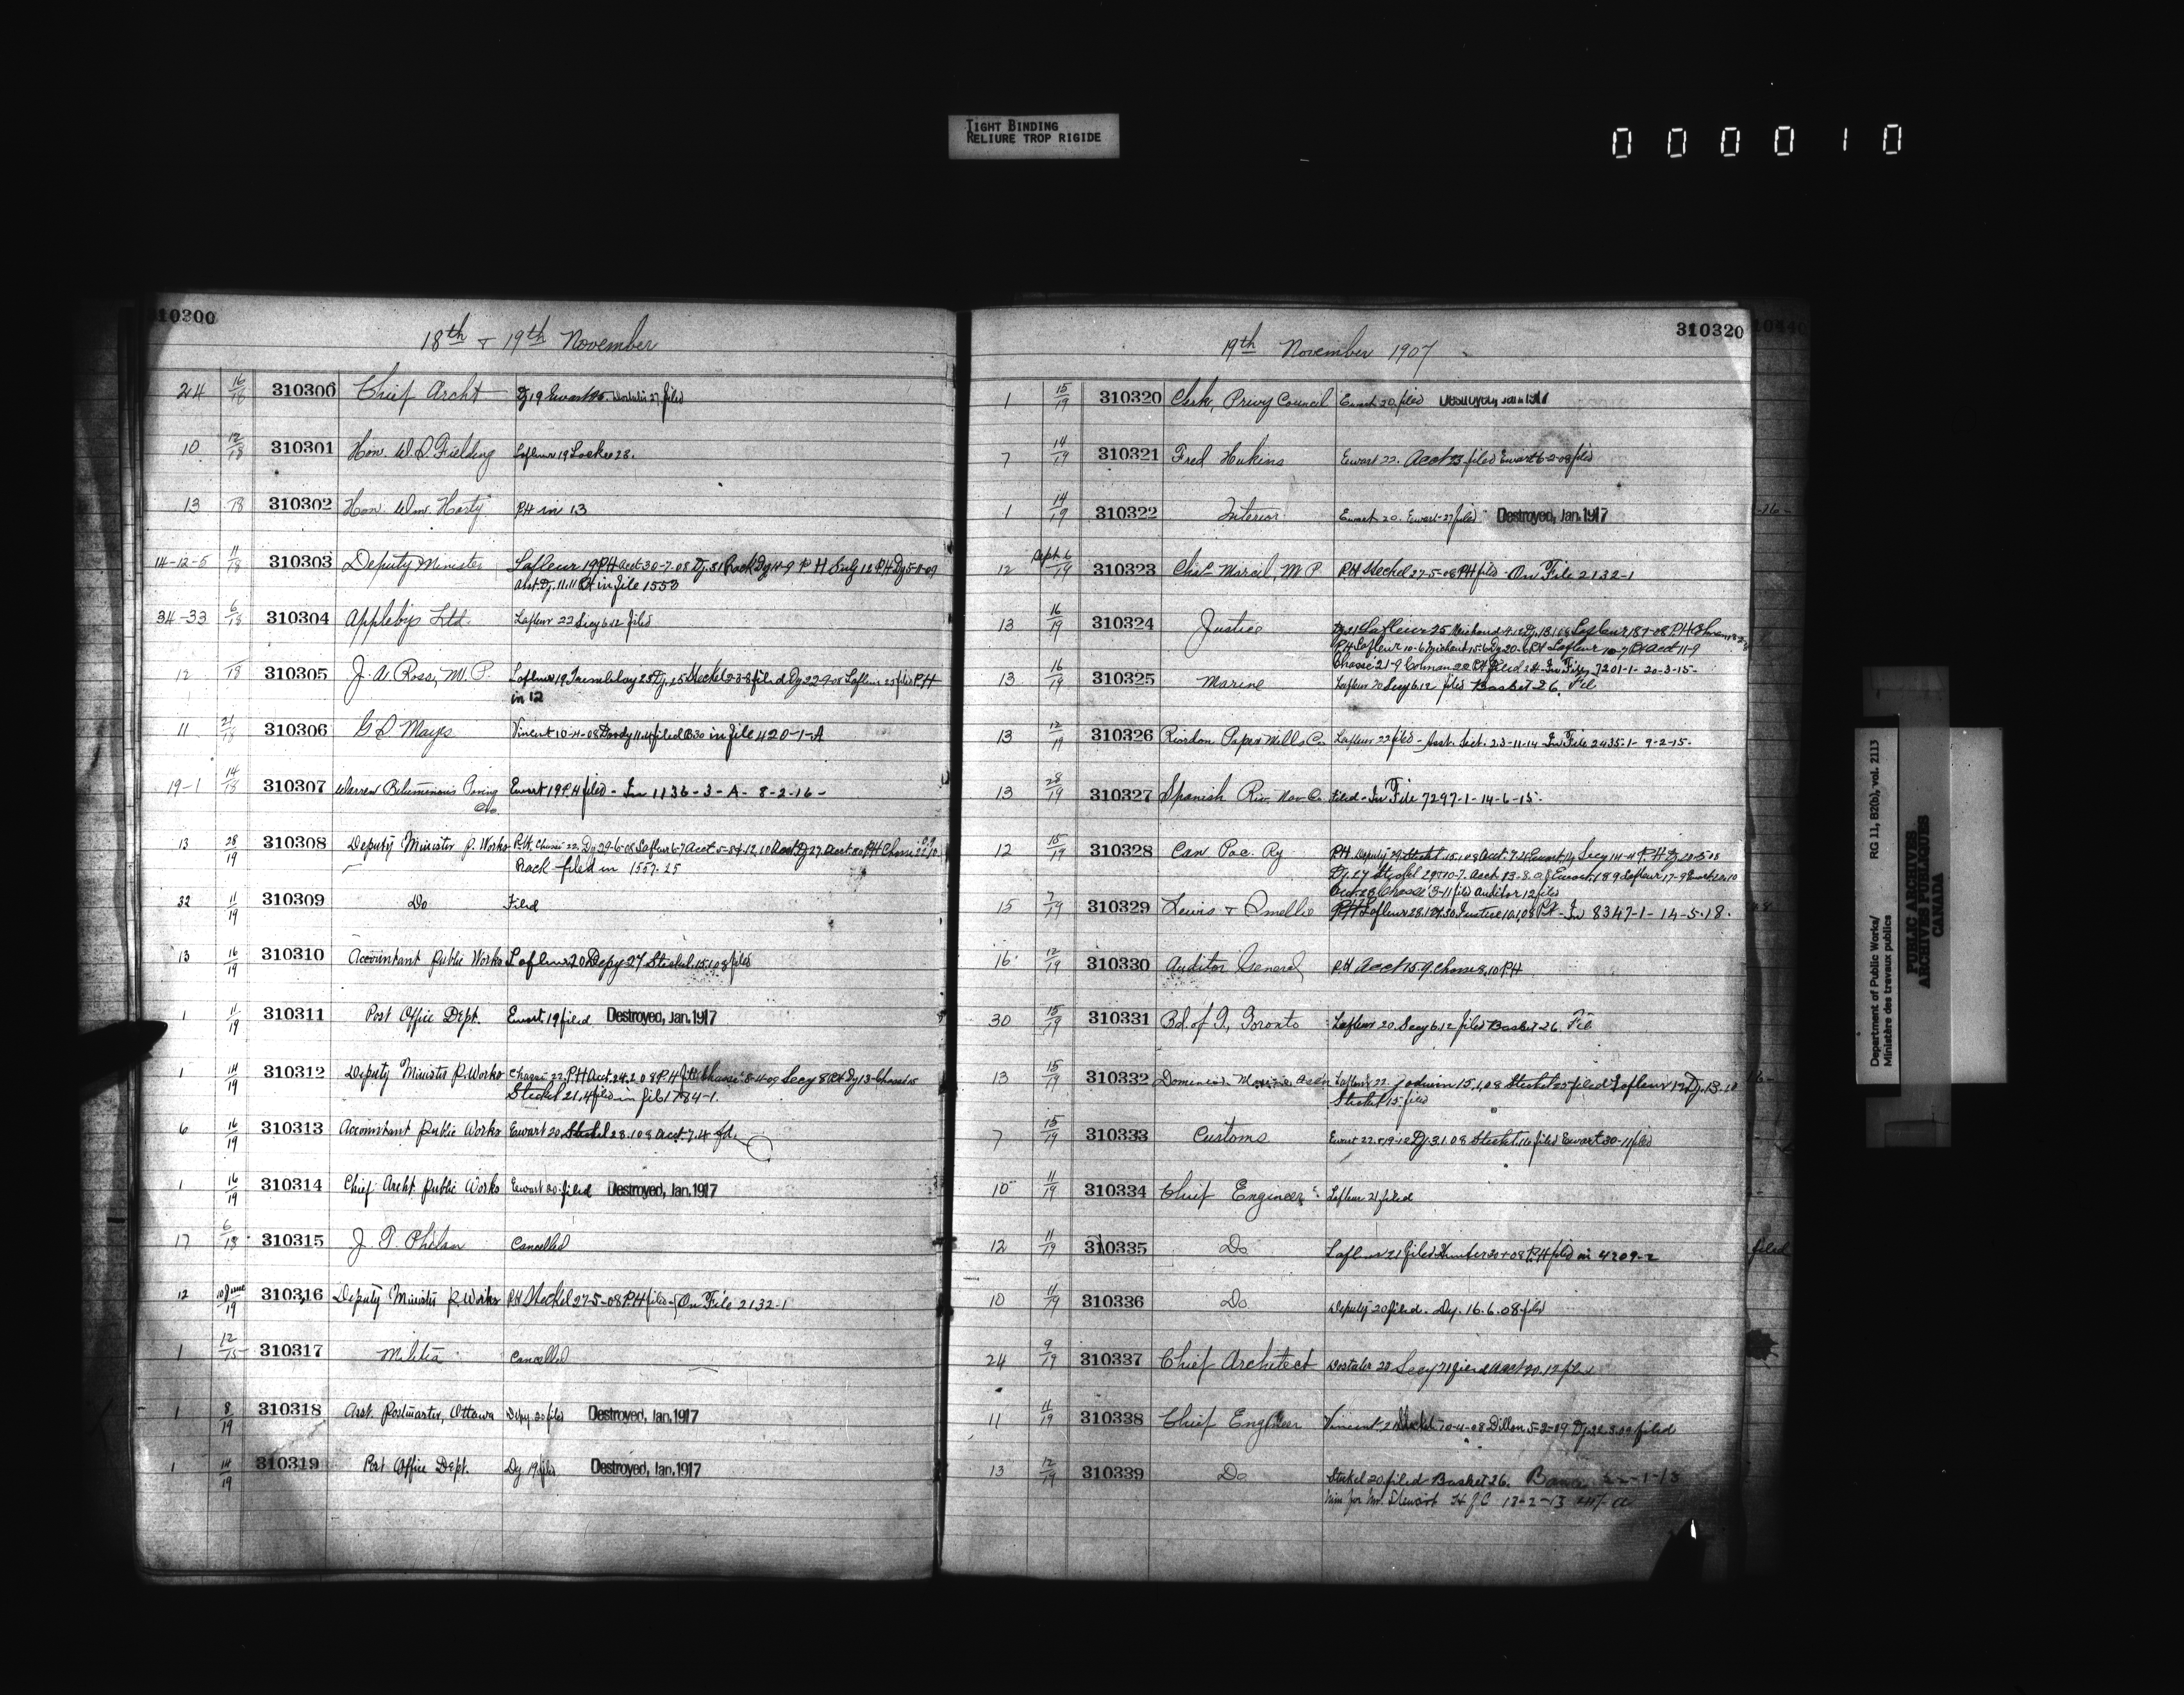 TIGHT BINDING
RELIURE TROP RIGIDE
000010
10300
18th & 19th November
24 16/18 310300 Chief Archt Dy 19 Ewart filed
10 12/18 310301 Hon. W. S. Fielding Lafleur 19 Locke 28.
13 18 310302 Hon. Wm. Harty PH in 13
14-12-5 11/18 310303 Deputy Minister Lafleur 19 PH Acct 30-7-08 Dy. 31
in file 1553
34-33 6/18 310304 Applebys Ltd. Lafleur 22 Secy 6.12 filed
12 18 310305 J. A. Ross, M.P. Lafleur 19 Tremblay 25 Dy. 25 Steckel 2-3-8 filed Dy 22-9-08 Lafleur 23 filed PH
in 12
11 21/18 310306 G D Mayes Vincent 10-4-08 filed in file 420-1-A
19-1 14/18 310307 Warren Bituminous Paving Ewart 19 P.H filed - In 1136-3-A- 8-2-16-
Co.
13 28/19 310308 Deputy Minister P. Works P.H. Chassé 22, Dy 29-6-08 Lafleur 6-7 Acct
Rack filed in 1557-25
32 11/19 310309 Do Filed
13 16/19 310310 Accountant Public Works Lafleur 20 Depy 27 Steckel 15.1.08 filed
1 11/19 310311 Post Office Dept. Ewart 19 filed Destroyed, Jan. 1917
1 14/19 310312 Deputy Minister P. Works Chassé 22, P.H Acct 24.2.08 P.H
Steckel 21.4 filed in file 1784-1.
6 16/19 310313 Accountant Public Works Ewart 20 Steckel 28.1.08 Acct. 7.4 fd.
1 16/19 310314 Chief Archt Public Works Ewart 20 filed Destroyed, Jan. 1917
17 6/18 310315 J. T. Phelan Cancelled
12 10 June/19 310316 Deputy Minister P. Works P.H Steckel 27-5-08 P.H filed On File 2132-1
1 12/15 310317 Militia Cancelled
1 8/19 310318 Asst. Postmaster, Ottawa Depy 20 filed Destroyed, Jan. 1917
1 14/19 310319 Post Office Dept. Dy 19 filed Destroyed, Jan. 1917
310320
19th November 1907
1 15/19 310320 Clerk, Privy Council Ewart 20 filed Destroyed, Jan. 1917
7 14/19 310321 Fred Hukins Ewart 22. Acct 23 filed Ewart 6-2-08 filed
1 14/19 310322 Interior Ewart 20. Ewart 27 filed Destroyed, Jan. 1917
12 Sept 6/19 310323 Chas. Marcil, M.P. P.H Steckel 27-5-08 P.H filed - On File 2132-1
13 16/19 310324 Justice Dy 21 Lafleur 25
P.H Lafleur 10-6 Lafleur 10-7 PH Acct 11-9
Chassé 21-9 In File 7201-1- 20-3-15-
13 16/19 310325 Marine Lafleur 20 Secy 6.12 filed Basket 26. Fil
13 12/19 310326 Riordon Paper Mills Co. Lafleur 22 filed - Asst. Sect. 23-11-14 In File 2435-1- 9-2-15-
13 28/19 310327 Spanish Riv. Nav. Co. Filed - In File 7297-1-14-6-15-
12 15/19 310328 Can Pac. Ry P.H. Deputy 29 Steckel 15.1.08 Acct.
Dy. 27 Steckel Lafleur 17-9
Chassé 3-11 filed Auditor 12 filed
15 7/19 310329 Lewis & Smellie Lafleur 28 Justice 10.1.08 P.H - In 8347-1-14-5-18.
16 12/19 310330 Auditor General P.H Acct 15.9. Chassé 8.10 P.H
30 15/19 310331 Bd. of T, Toronto Lafleur 20. Secy 6.12 filed Basket 26. Fil
13 15/19 310332 Dominion Marine Assn Lafleur 22 15.1.08 Steckel 25 filed Lafleur 12 Dy. 13.10
Steckel 15 filed
7 15/19 310333 Customs Ewart 22 Dy 3.1.08 Steckel 16 filed Ewart 30-11 filed
10 11/19 310334 Chief Engineer Lafleur 21 filed
12 11/19 310335 Do Lafleur 21 filed P.H filed in 4209-2
10 11/19 310336 Do Deputy 20 filed. Dy. 16.6.08 filed
24 9/19 310337 Chief Architect Dostaler 20 Secy 21 filed Acct 20.12 filed
11 11/19 310338 Chief Engineer Vincent Steckel 10-4-08 Dillon 5-2-09 filed
13 12/19 310339 Do Steckel 20 filed Basket 26.
for Mr. Stewart H J C 12-2-13
filed
Department of Public Works/ RG 11, B2(b), vol. 2113
Ministère des travaux publics
PUBLIC ARCHIVES
ARCHIVES PUBLIQUES
CANADA